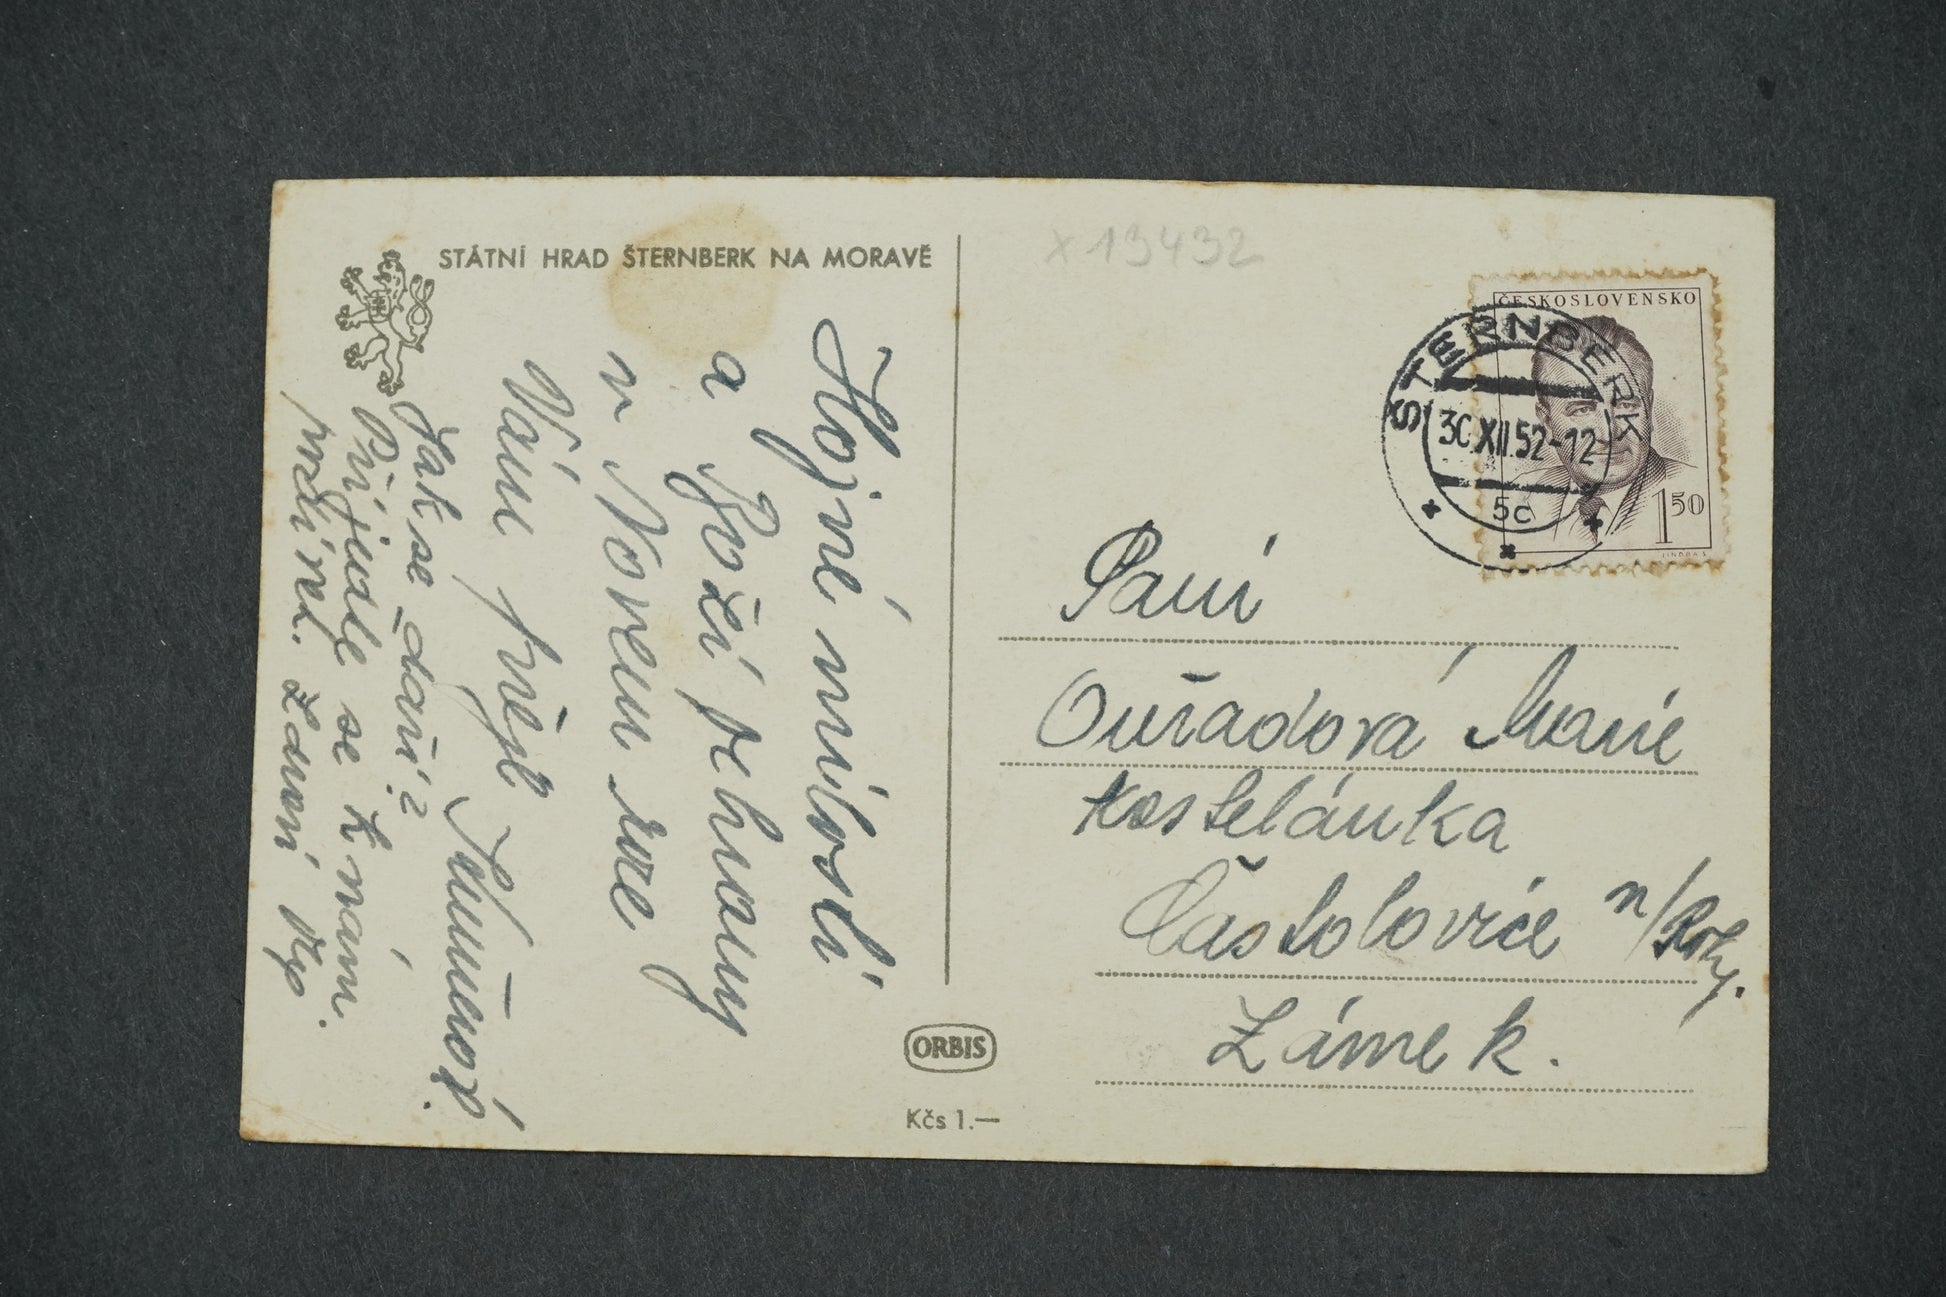 STÁTNÍ HRAD ŠTERNBERK NA MORAVĚ
Hojné milosti
a Boží ochrany
v Novém roce
Vám přeje
Jak se daří?
Přijede se k nám
podívat. Zdraví
x 13432
ČESKOSLOVENSKO
1 50
JINDRA S.
STERNBERK
30.XII.52-12
5c
Paní
Ouřadová Marie
kostelánka
Častolovice n/Orl.
Zámek.
ORBIS
Kčs 1.—